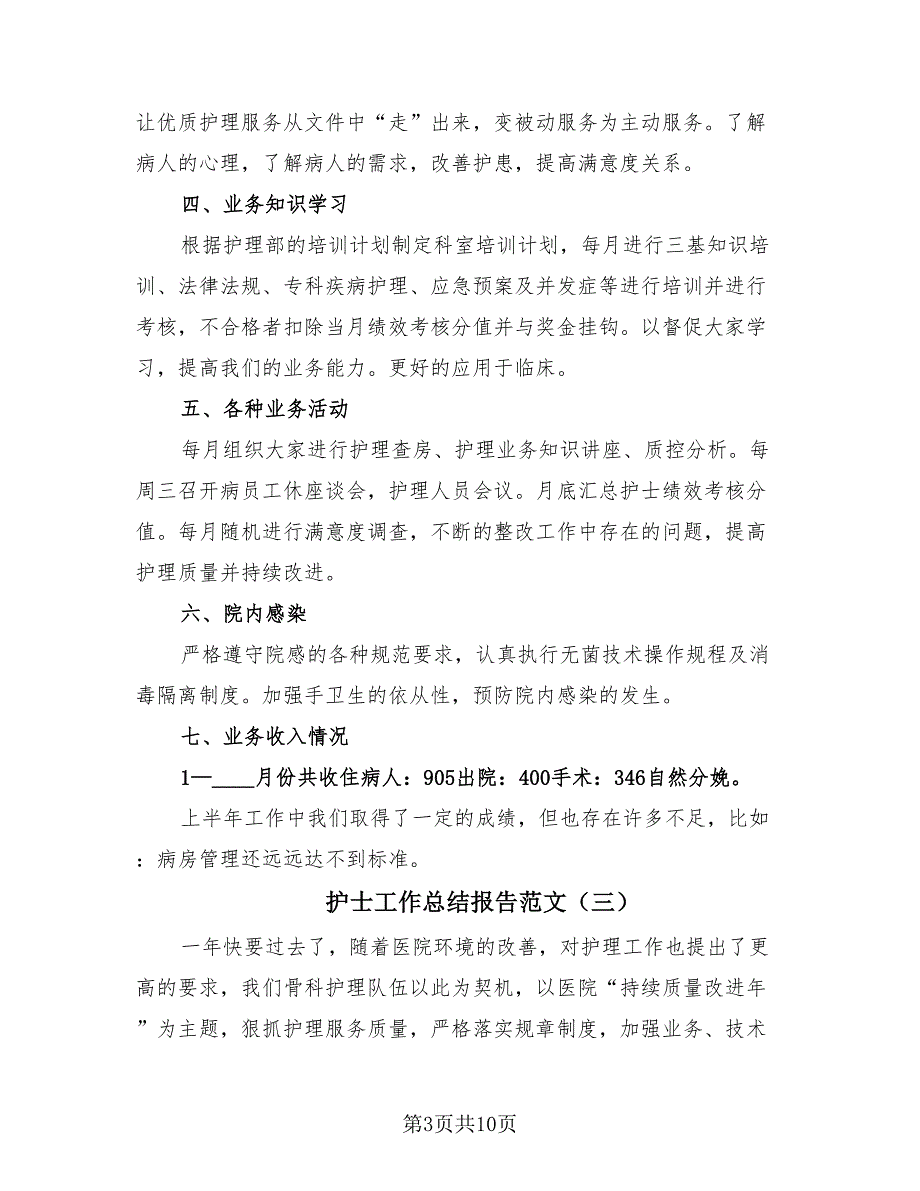 让优质护理服务从文件中“走”出来，变被动服务为主动服务。了解
病人的心理，了解病人的需求，改善护患，提高满意度关系。
四、业务知识学习
根据护理部的培训计划制定科室培训计划，每月进行三基知识培
训、法律法规、专科疾病护理、应急预案及并发症等进行培训并进行
考核，不合格者扣除当月绩效考核分值并与奖金挂钩。以督促大家学
习，提高我们的业务能力。更好的应用于临床。
五、各种业务活动
每月组织大家进行护理查房、护理业务知识讲座、质控分析。每
周三召开病员工休座谈会，护理人员会议。月底汇总护士绩效考核分
值。每月随机进行满意度调查，不断的整改工作中存在的问题，提高
护理质量并持续改进。
六、院内感染
严格遵守院感的各种规范要求，认真执行无菌技术操作规程及消
毒隔离制度。加强手卫生的依从性，预防院内感染的发生。
七、业务收入情况
1—____月份共收住病人：905出院：400手术：346自然分娩。
上半年工作中我们取得了一定的成绩，但也存在许多不足，比如
：病房管理还远远达不到标准。
护士工作总结报告范文（三）
一年快要过去了，随着医院环境的改善，对护理工作也提出了更
高的要求，我们骨科护理队伍以此为契机，以医院“持续质量改进年
”为主题，狠抓护理服务质量，严格落实规章制度，加强业务、技术
第3页共10页